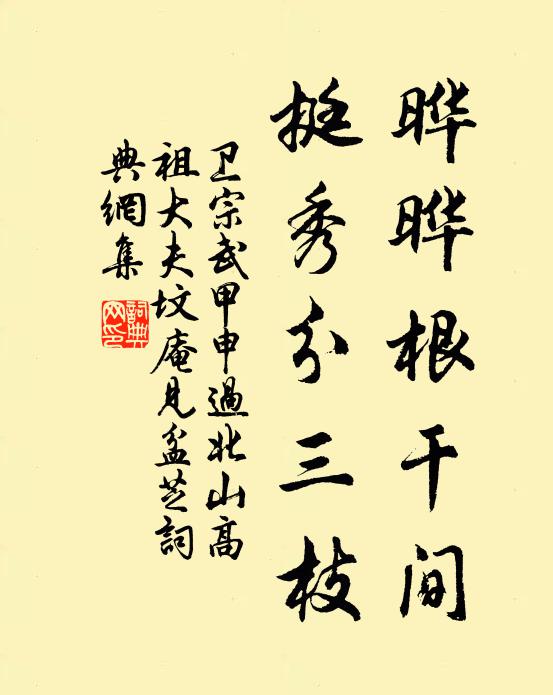 晔晔根干间
挺秀分三枝
卫宗武甲申過北山高
祖大夫坟庵見盆芝詞
典網集
詞典网印